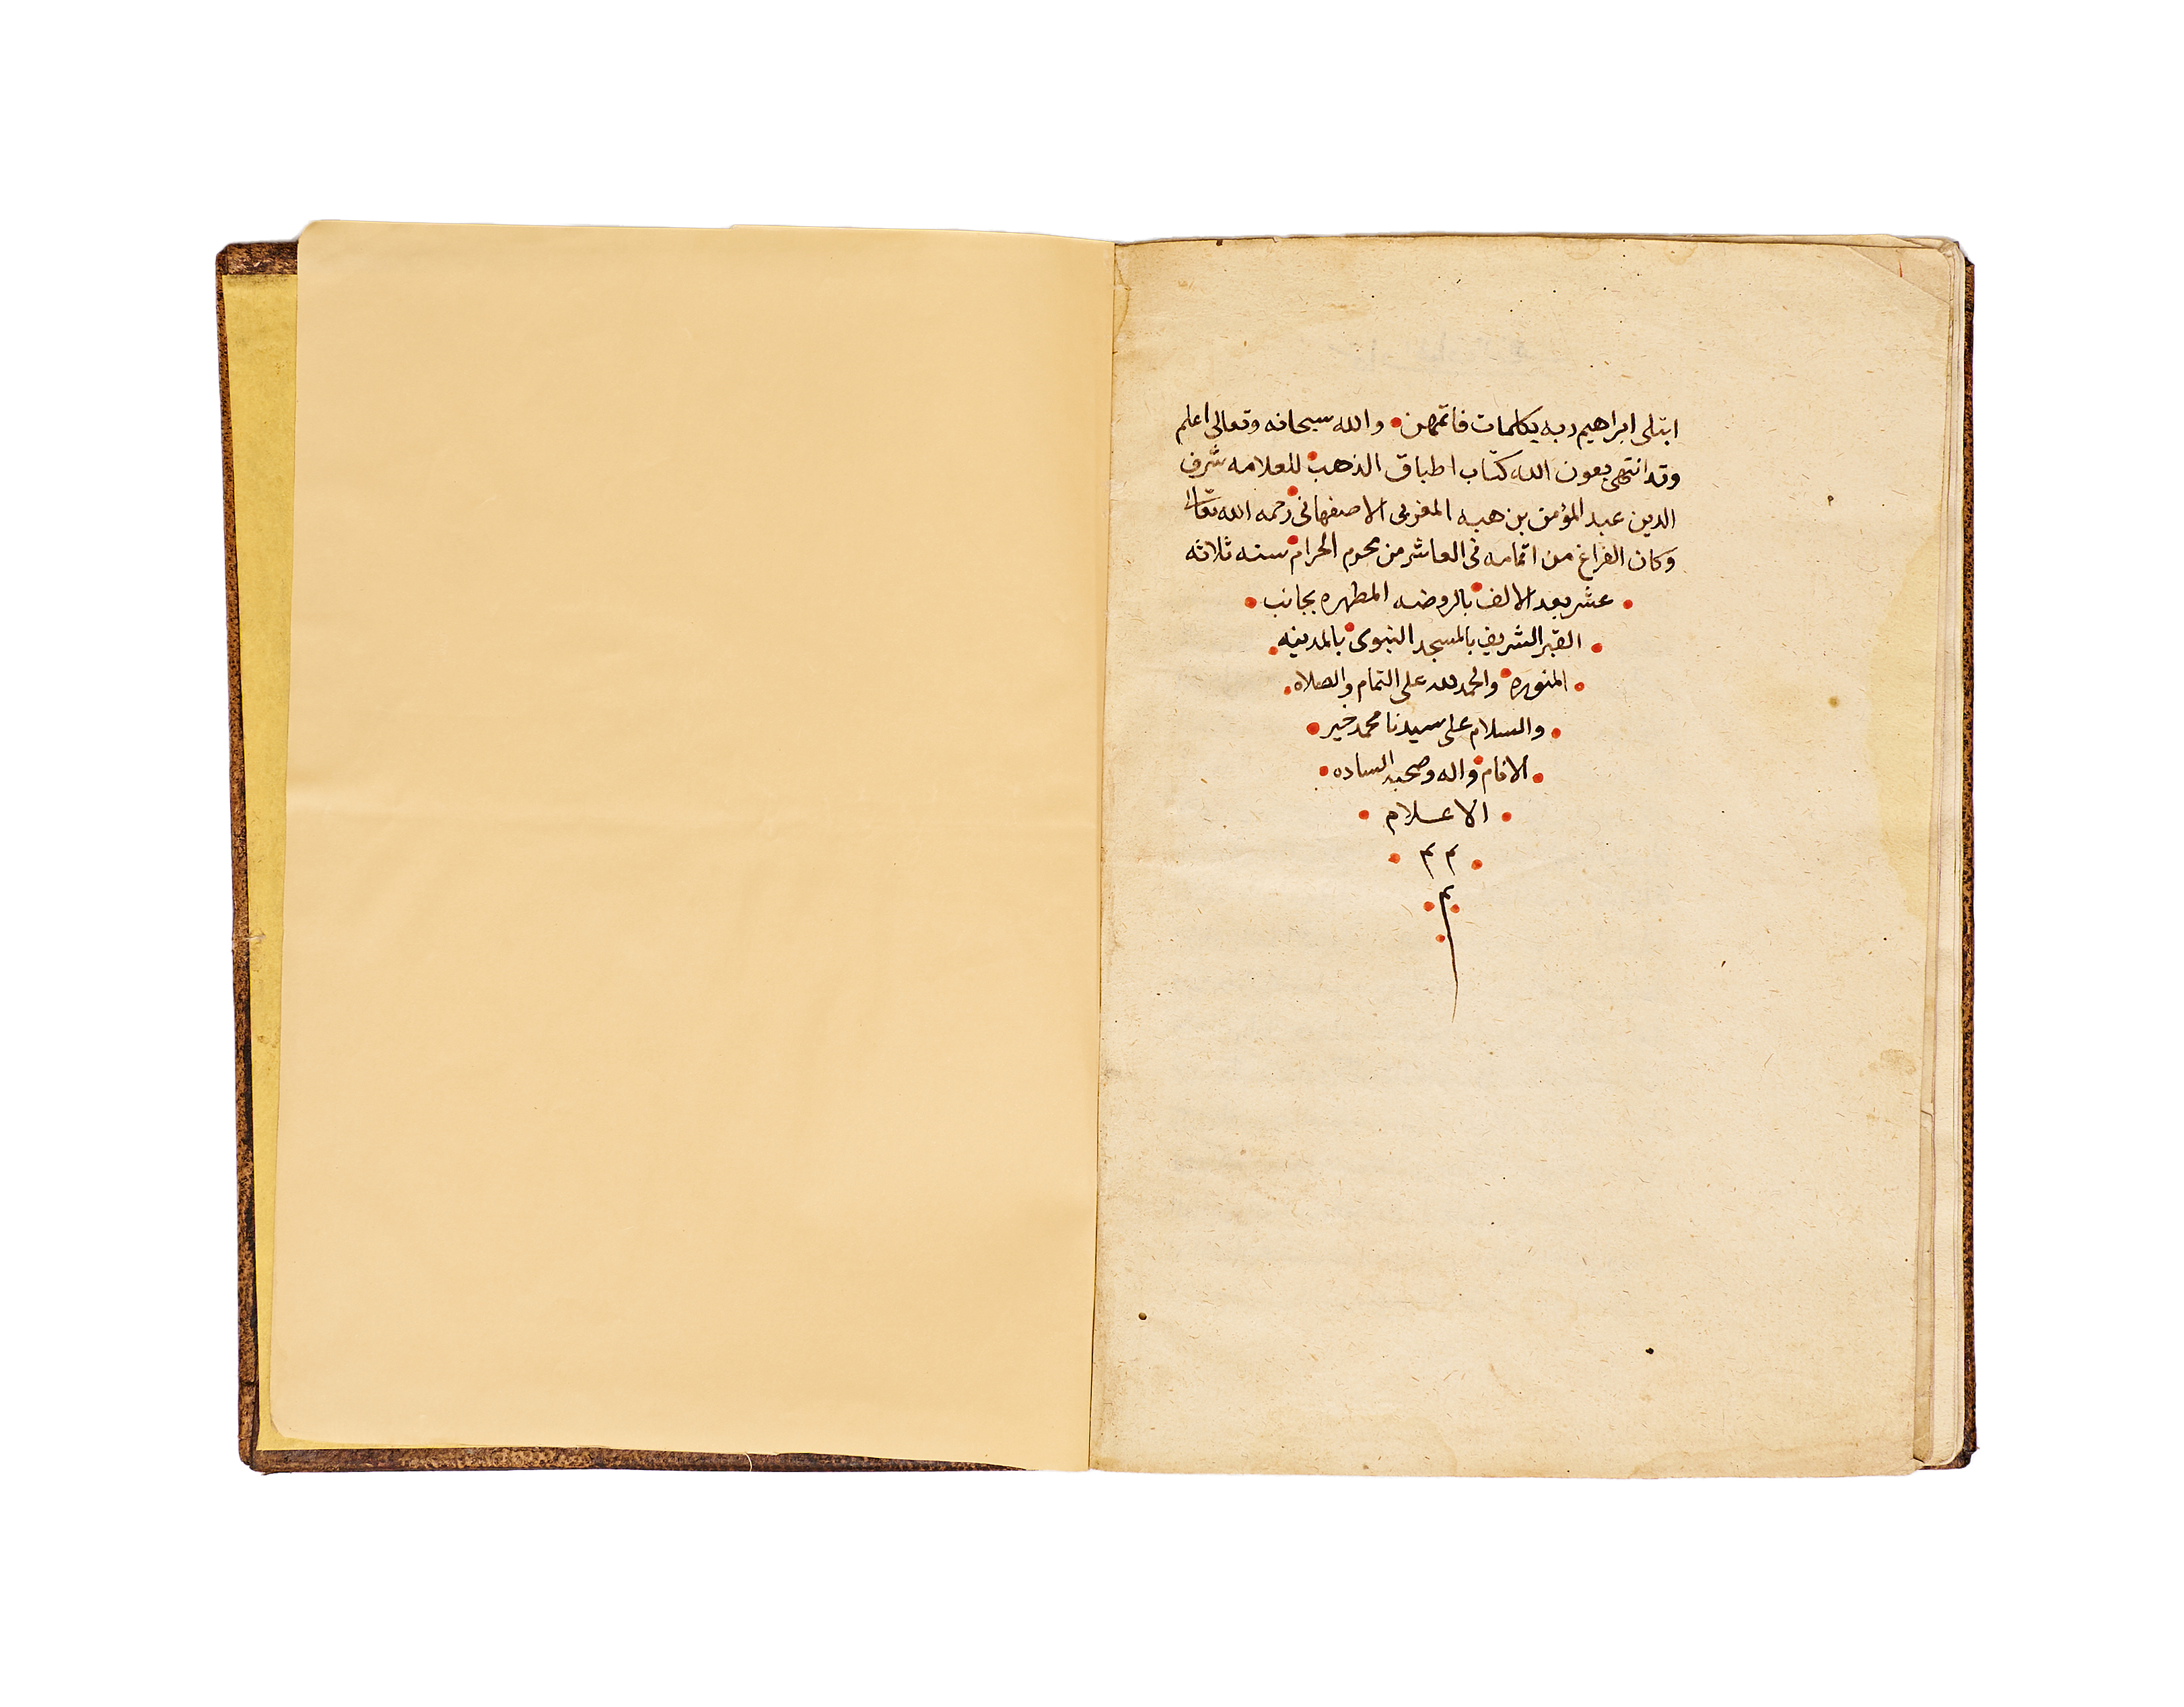 ابتلى ابراهيم ربه بكلمات فاتمهن والله سبحانه وتعالى اعلم
وقد انتهى بعون الله كتاب اطباق الذهب للعلامه شرف
الدين عبد المؤمن بن هبه المغربى الاصفهانى رحمه الله تعالى
وكان الفراغ من اتمامه فى العاشر من محرم الحرام سنه ثلاثه
عشر بعد الالف بالروضه المطهره بجانب
القبر الشريف بالمسجد النبوى بالمدينه
المنوره والحمد لله على التمام والصلاه
والسلام على سيدنا محمد خير
الانام واله وصحبه الساده
الاعلام
م م
م